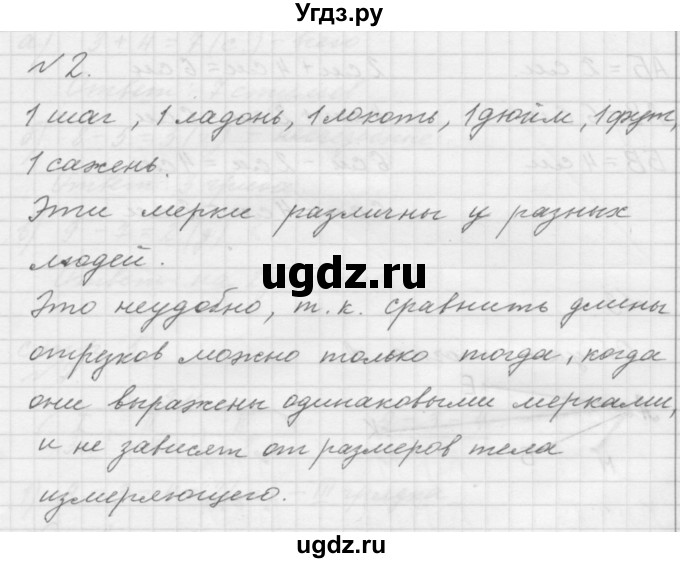 Угдз.ру
№2.
1 шаг, 1 ладонь, 1 локоть, 1 дюйм, 1 фут,
1 сажень.
Эти мерки различны у разных
людей.
ugdz.ru
Это неудобно, т.к. сравнить длины
отрезков можно только тогда, когда
они выражены одинаковыми мерками,
и не зависят от размеров тела
измеряющего.
ugdz.ru